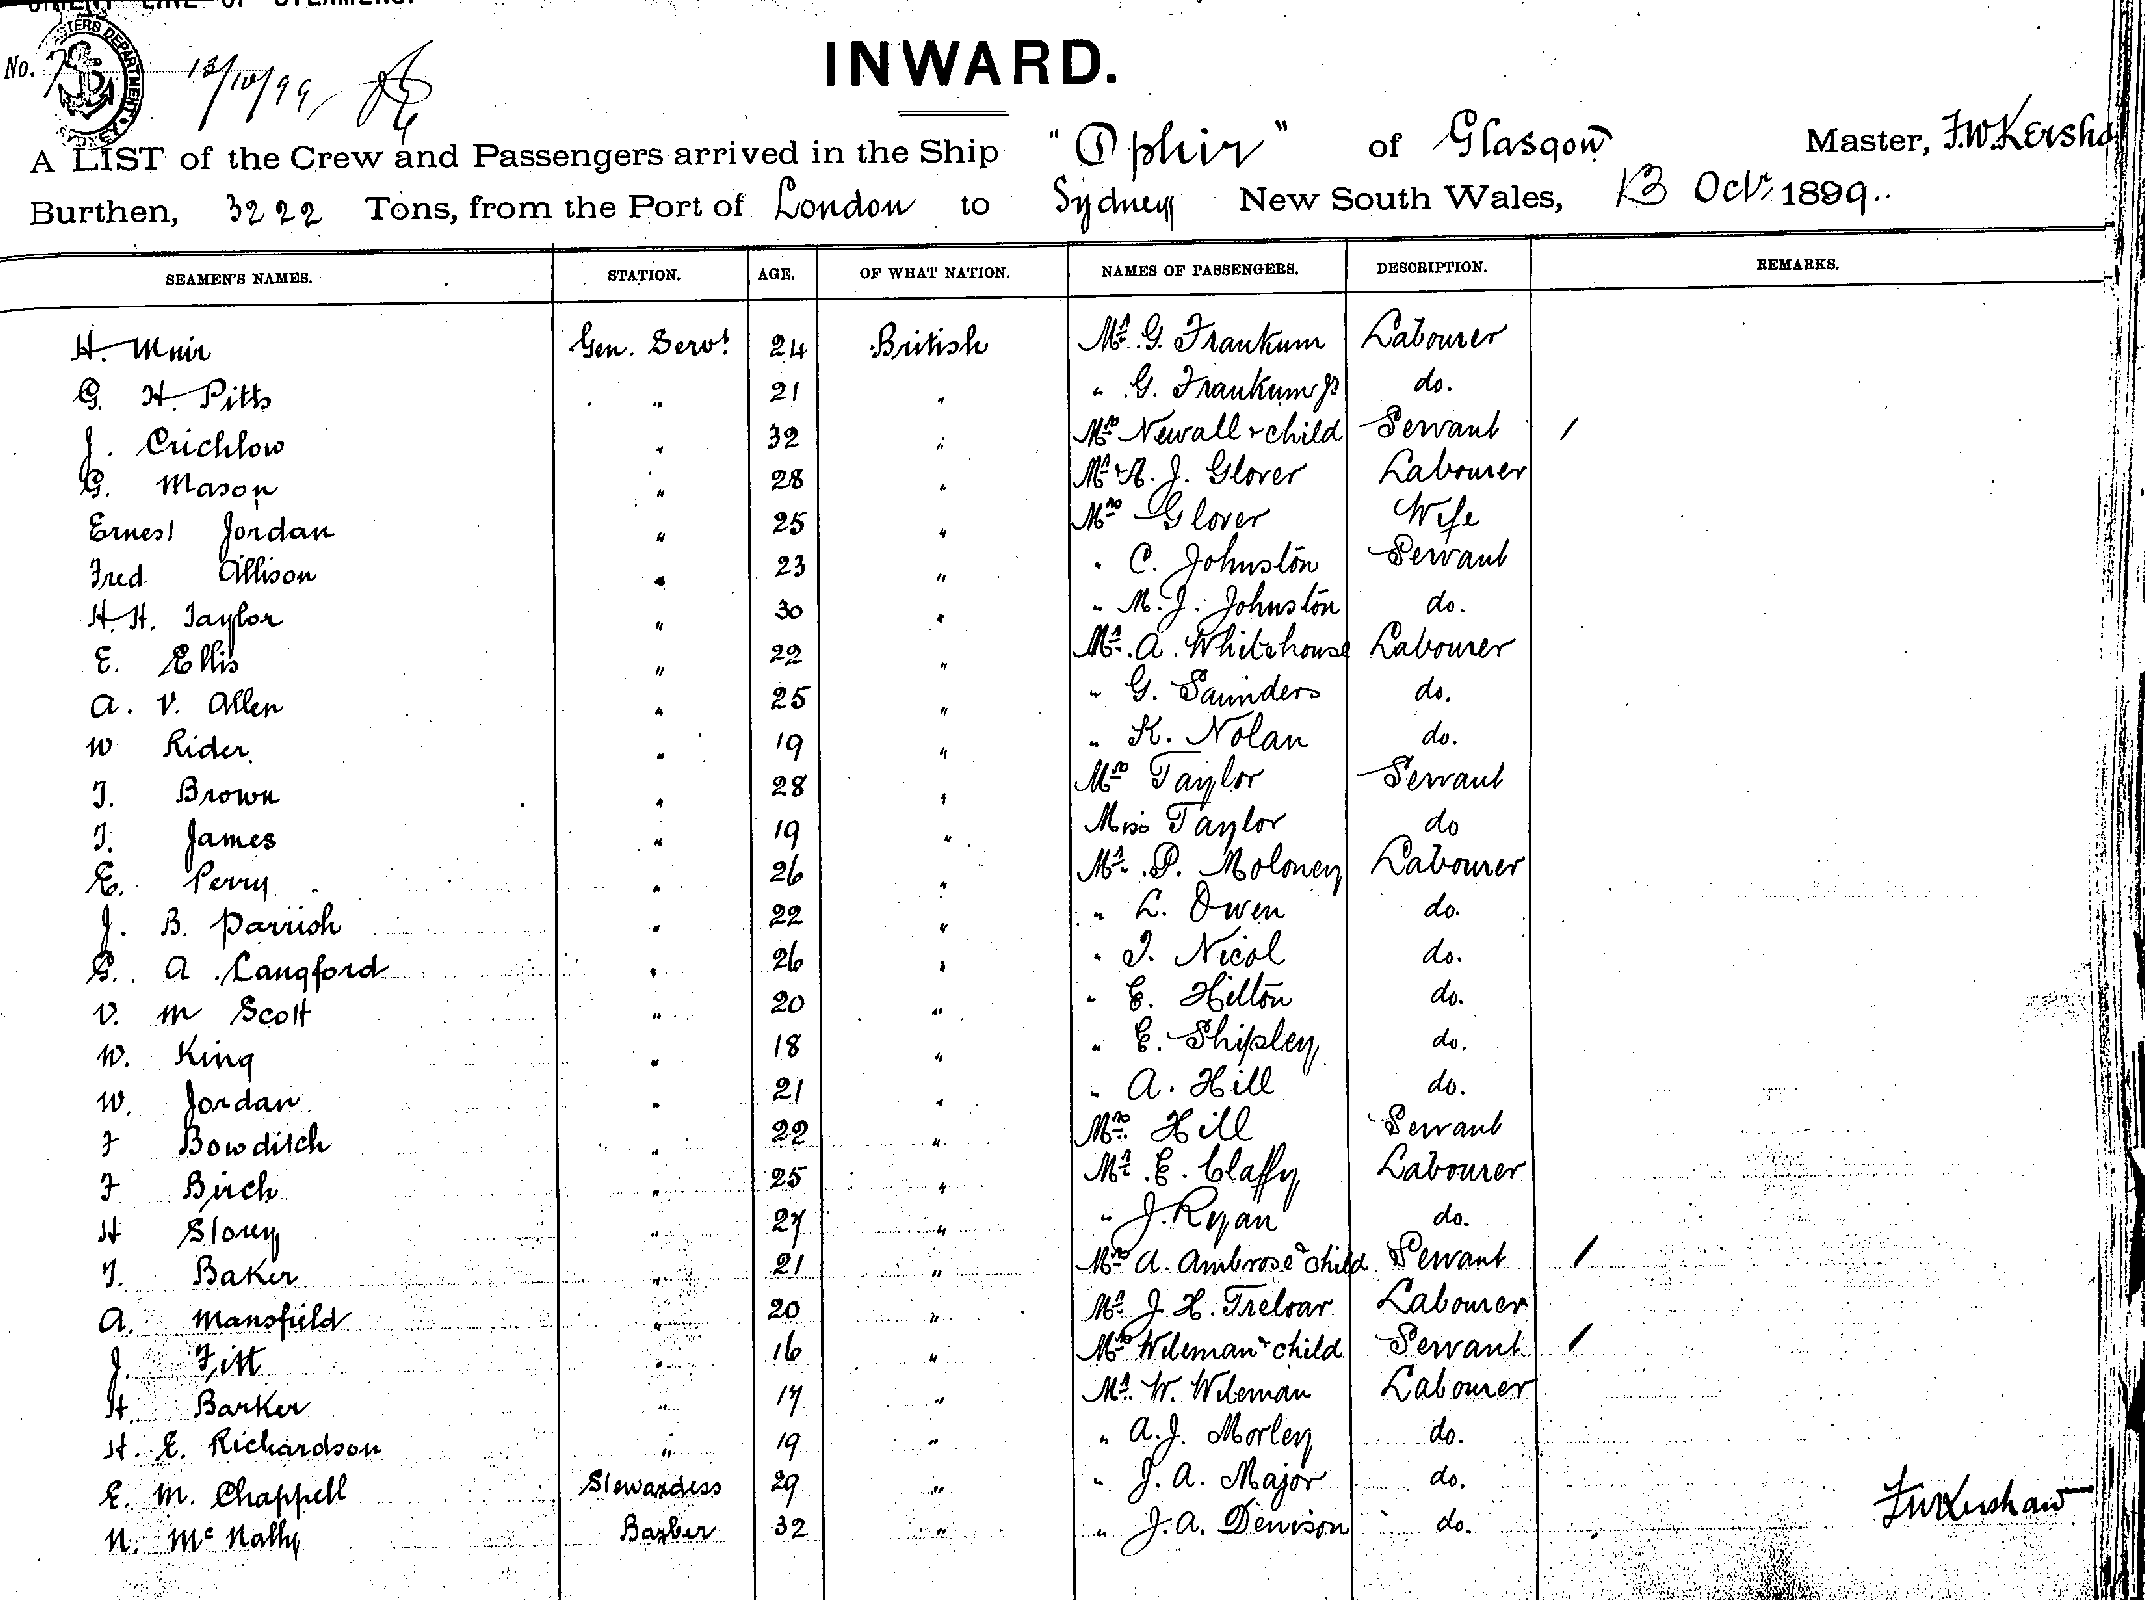 ORIENT LINE OF STEAMERS.
No. 7
13/10/99
INWARD.
A LIST of the Crew and Passengers arrived in the Ship "Ophir" of Glasgow Master, F.W. Kersha
Burthen, 3222 Tons, from the Port of London to Sydney New South Wales, 13 Oct. 1899.
SEAMEN'S NAMES. STATION. AGE. OF WHAT NATION. NAMES OF PASSENGERS. DESCRIPTION. REMARKS.
H. Muir Gen. Servt. 24 British Mr. G. Frankum Labourer
G. H. Pitts " 21 " " G. Frankum Jr do.
J. Crichlow " 32 " Mrs Newall & child Servant /
G. Mason " 28 " Mr A. J. Glover Labourer
Ernest Jordan " 25 " Mrs Glover Wife
Fred Allison " 23 " " C. Johnston Servant
H. H. Taylor " 30 " " M. J. Johnston do.
E. Ellis " 22 " Mr. A. Whitehouse Labourer
A. V. Allen " 25 " " G. Saunders do.
W Rider " 19 " " K. Nolan do.
T. Brown " 28 " Mrs Taylor Servant
T. James " 19 " Miss Taylor do
E. Perry " 26 " Mr. P. Moloney Labourer
J. B. Parrish " 22 " " L. Owen do.
G. A. Langford " 26 " " T. Nicol do.
V. M Scott " 20 " " E. Hilton do.
W. King " 18 " " E. Shipley do.
W. Jordan " 21 " " A. Hill do.
F Bowditch " 22 " Mrs. Hill Servant
F Birch " 25 " Mr. E. Claffy Labourer
H Storey " 27 " " J. Ryan do.
T. Baker " 21 " Mrs A. Ambrose & child Servant /
A. Mansfield " 20 " Mr. J. H. Treloar Labourer
J. Fitt " 16 " Mrs Wileman & child Servant /
H. Barker " 17 " Mr. W. Wileman Labourer
H. E. Richardson " 19 " " A. J. Morley do.
E. M. Chappell Stewardess 29 " " J. A. Major do.
N. McNally Barber 32 " " J. A. Denison do.
FWKershaw